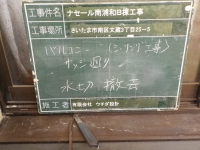 工事件名 ナセール南浦和B棟工事
工事場所 さいたま市南区文蔵3丁目25-5
バルコニー 〈シーリング工事〉
サッシ廻り
水切 撤去
施工者 有限会社 ウチダ設計